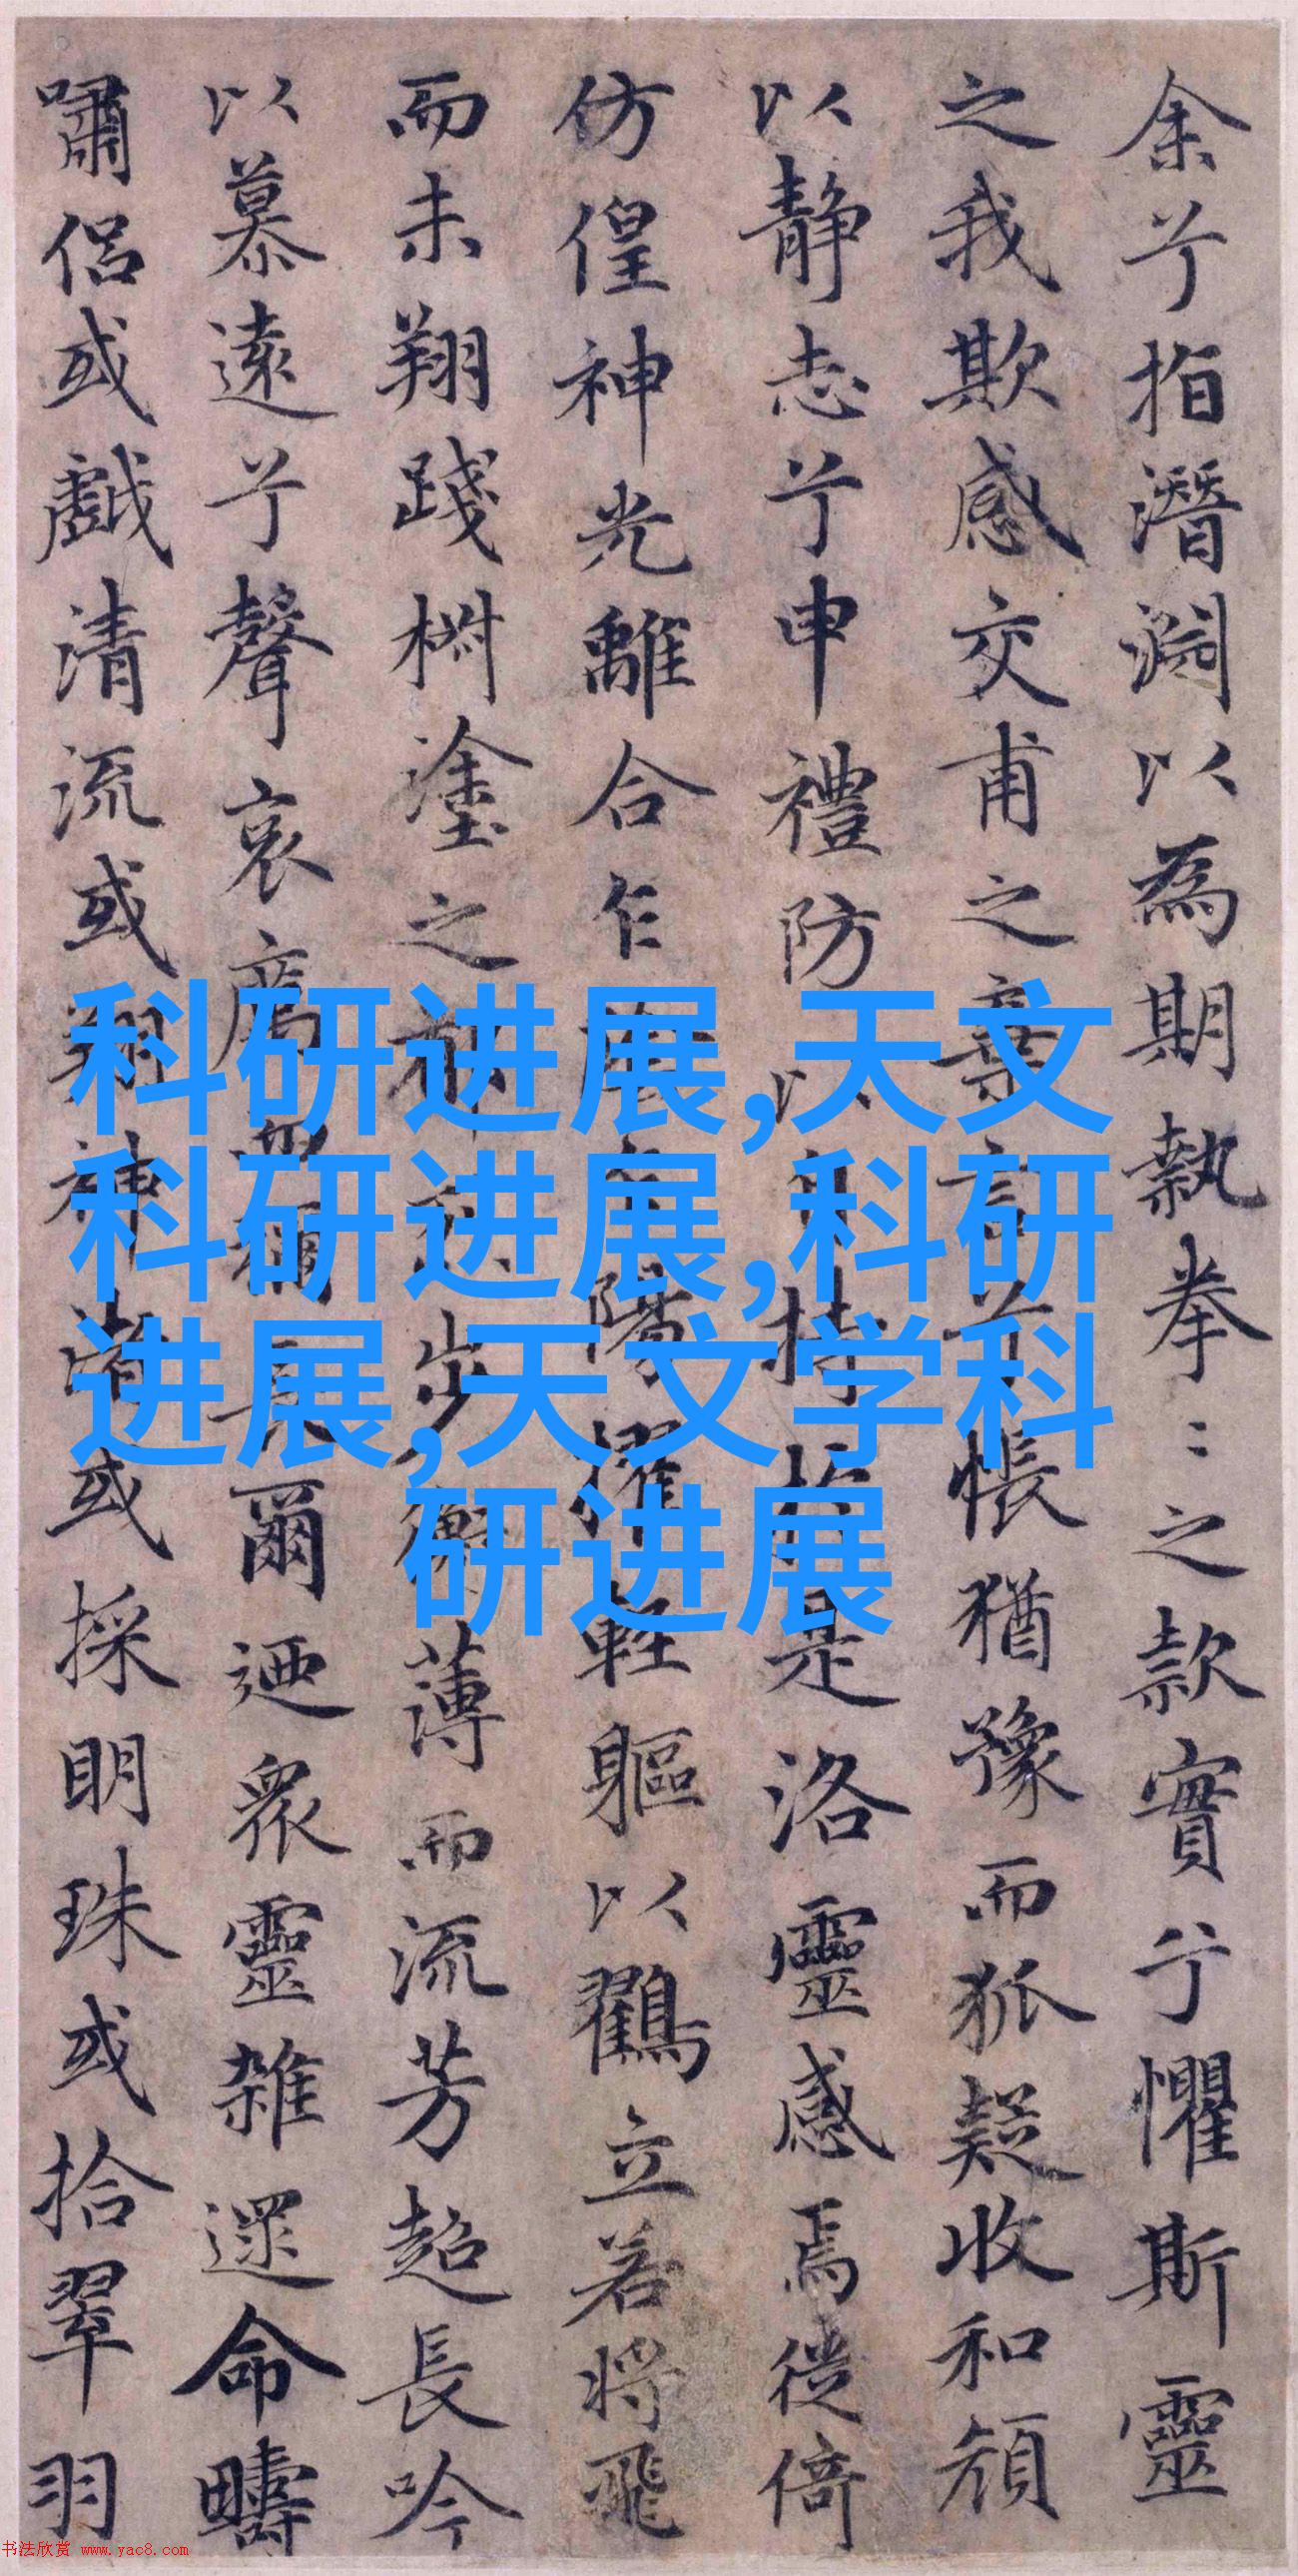 余兮指潛淵以為期執拳〻之款實兮懼斯靈
之我欺感交甫之棄言兮悵猶豫而狐疑收和顏
以靜志兮申禮防以自持於是洛靈感焉徙倚
仿偟神光離合乍陰乍陽擢輕軀以鶴立若將飛
而未翔踐椒塗之郁烈步衡薄而流芳超長吟
以慕遠兮聲哀厲而彌長爾迺眾靈雜遝命疇
嘯侶或戲清流或翔神渚或採明珠或拾翠羽
科研进展,天文
科研进展,科研
进展,天文学科
研进展
书法欣赏 www.yac8.com